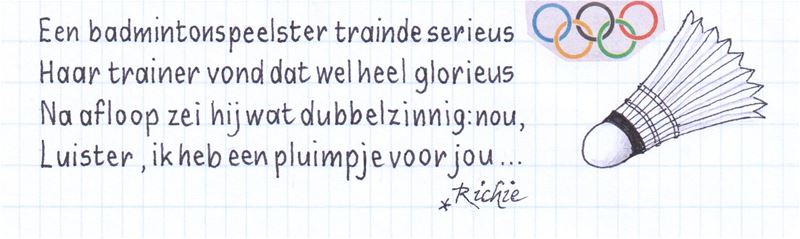 Een badmintonspeelster trainde serieus
Haar trainer vond dat wel heel glorieus
Na afloop zei hij wat dubbelzinnig: nou,
Luister, ik heb een pluimpje voor jou...
*Richie